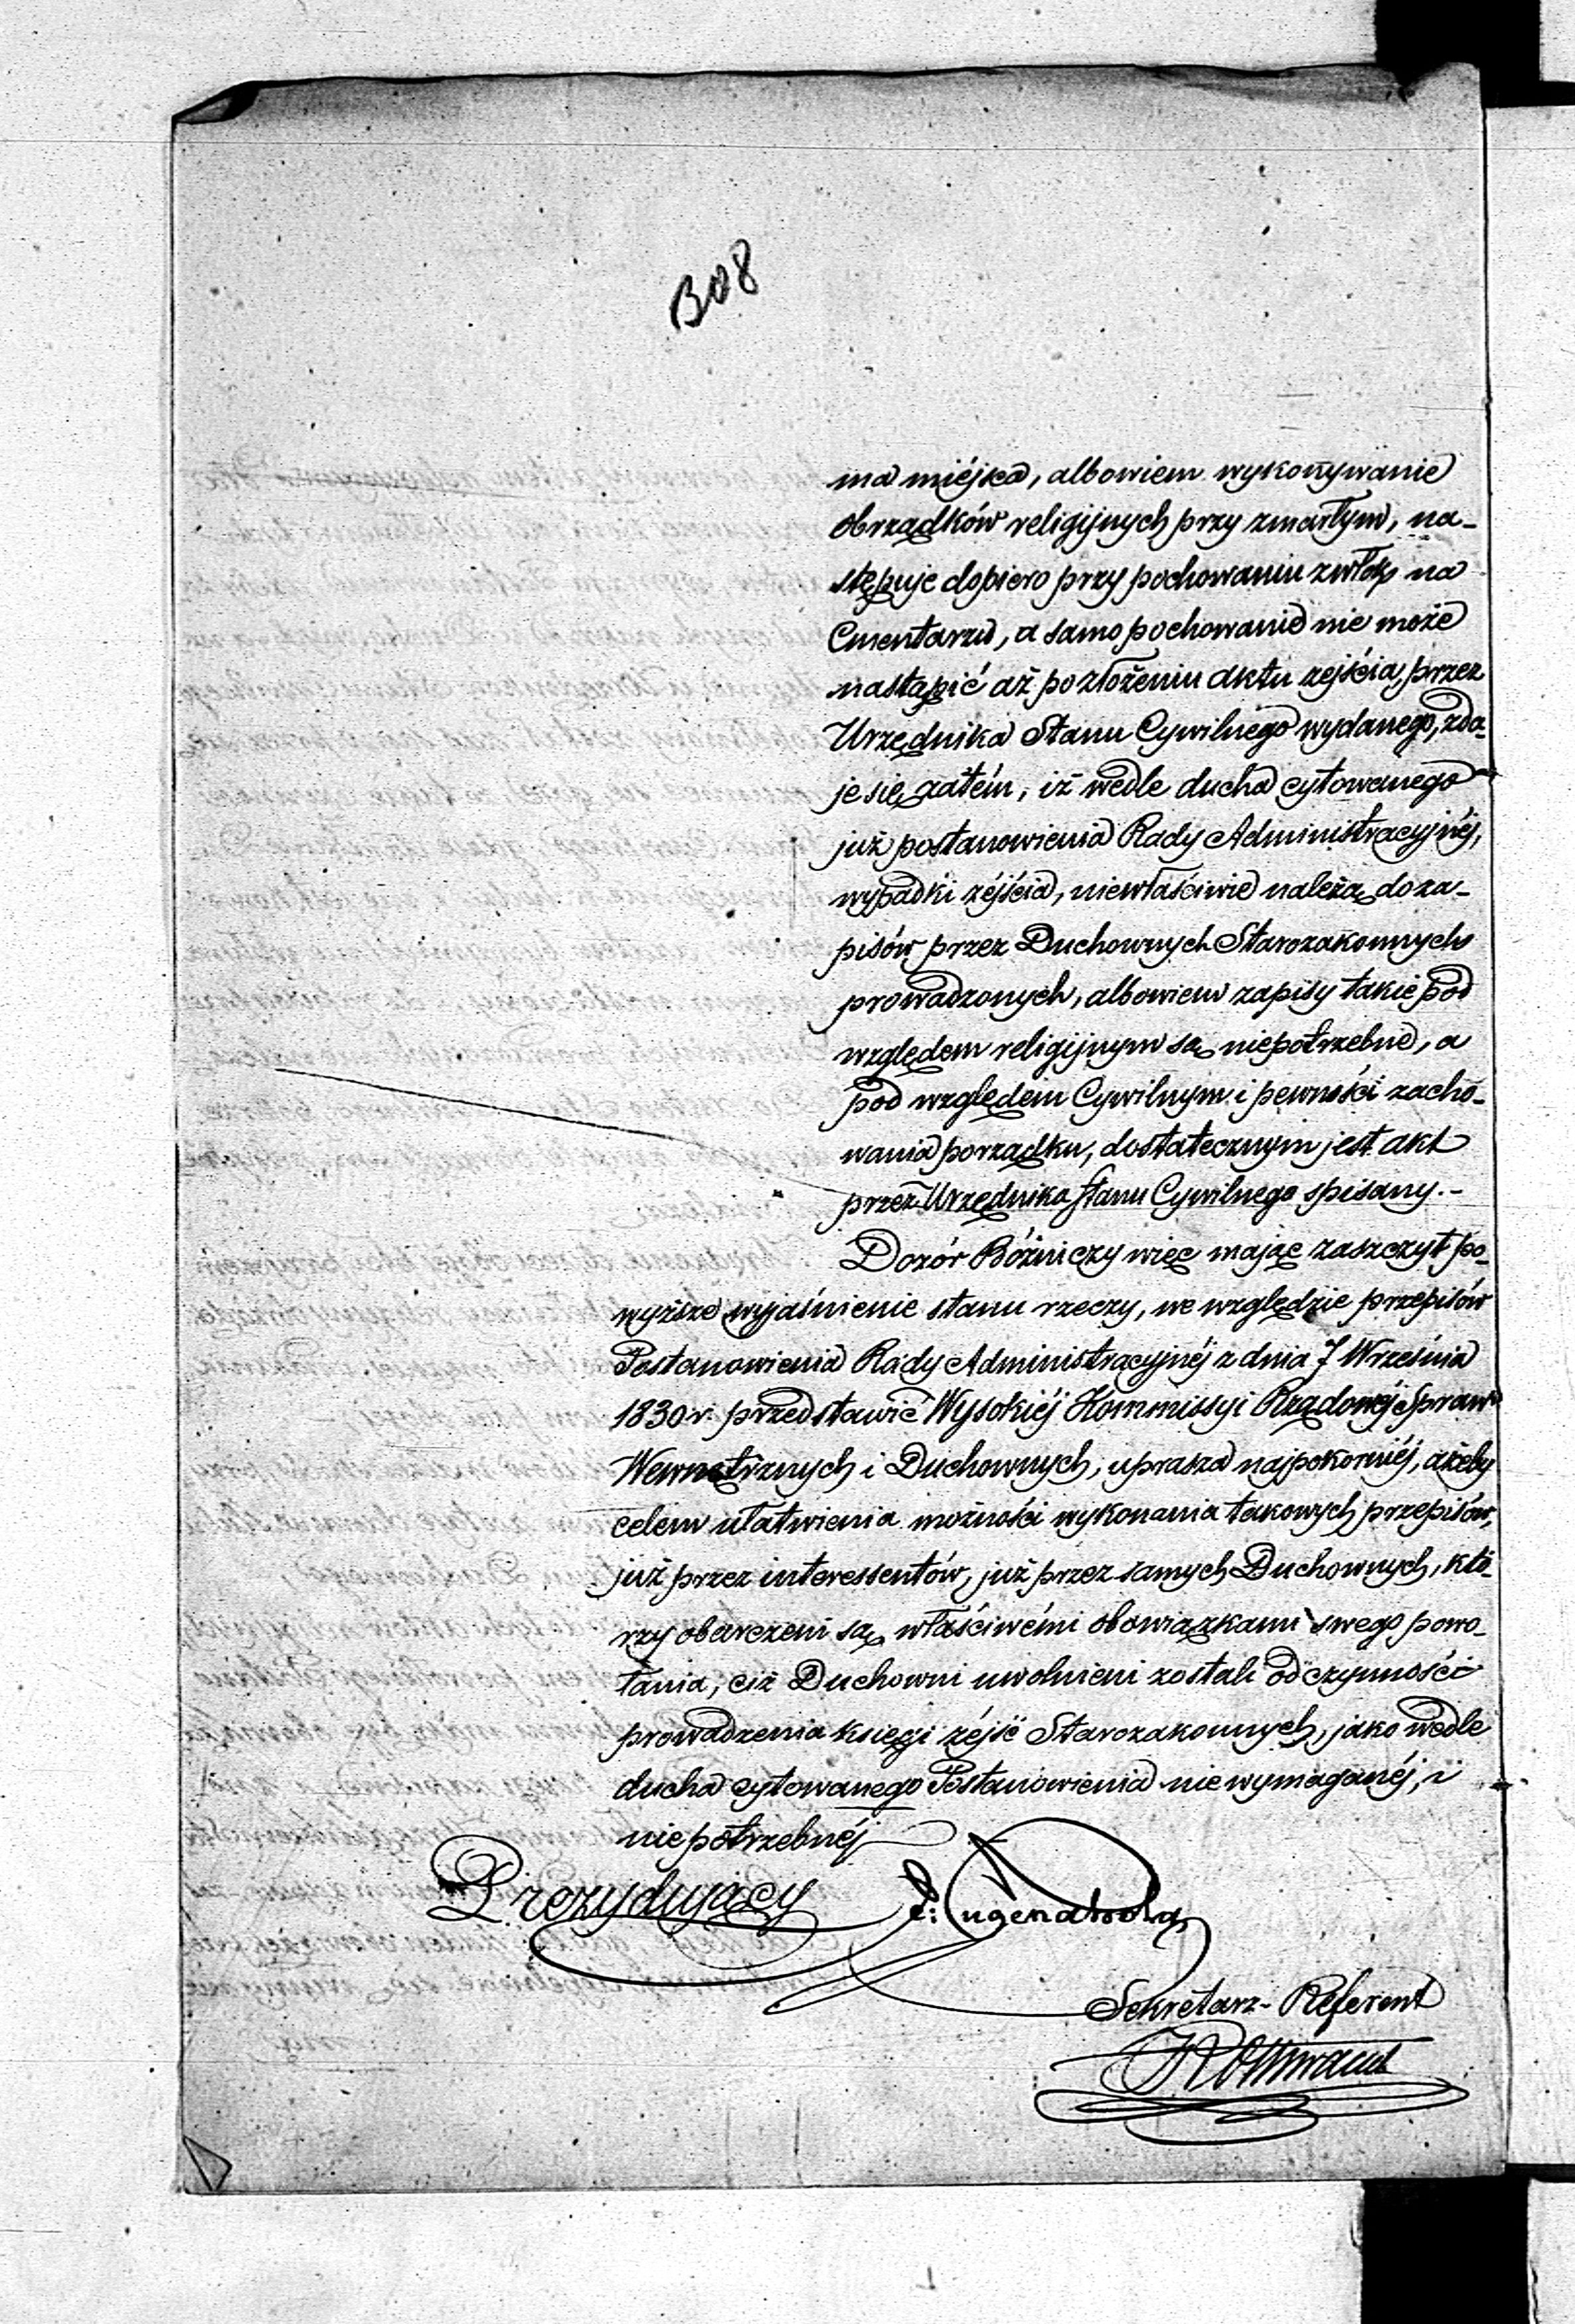 308
ma miéjsca, albowiem wykonywanie
obrządków religijnych przy zmarłym, na-
stępuje dopiero przy pochowaniu zwłok na
Cmentarzu, a samo pochowanie nie może
nastąpić aż po złożeniu aktu zejścia, przez
Urzędnika Stanu Cywilnego wydanego, zda-
je się zatém, iż wedle ducha cytowanego
już postanowienia Rady Administracyjnéj,
wypadki zéjścia, niewłaściwie należą do za-
pisów przez Duchownych Starozakonnych
prowadzonych, albowiem zapisy takie pod
względem religijnym są niepotrzebne, a
pod względem Cywilnym i pewności zacho-
wania porządku, dostatecznym jest akt
przez Urzędnika stanu Cywilnego spisany.-
Dozór Bóżniczy więc mając zaszczyt po-
wyższe wyjaśnienie stanu rzeczy, we względzie przepisów
Postanowienia Rady Administracyjnéj z dnia 7 Września
1830 r. przedstawić Wysokiéj Kommissyi Rządowéj Spraw
Wewnetrznych i Duchownych, uprasza najpokorniéj, ażeby
celem ułatwienia możności wykonania takowych przepisów,
już przez interessentów, już przez samych Duchownych, któ-
rzy obarczeni są właściwémi obowiązkami swego powo-
łania, ciż Duchowni uwolnieni zostali od czynności
prowadzenia księgi zéjść Starozakonnych, jako wedle
ducha cytowanego Postanowienia nie wymaganéj, i
niepotrzebnéj
Prezydujący
Sekretarz-Referent